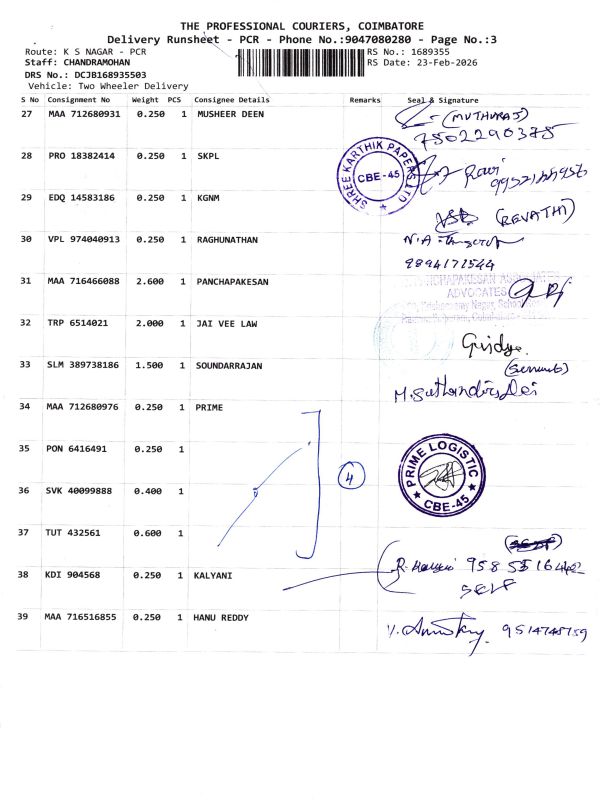 THE PROFESSIONAL COURIERS, COIMBATORE
Delivery Runsheet - PCR - Phone No.:9047080280 - Page No.:3
Route: K S NAGAR - PCR
RS No.: 1689355
Staff: CHANDRAMOHAN
RS Date: 23-Feb-2026
DRS No.: DCJB168935503
Vehicle: Two Wheeler Delivery
S No Consignment No Weight PCS Consignee Details Remarks Seal & Signature
27 MAA 712680931 0.250 1 MUSHEER DEEN
(MUTHURAJ)
7502290375
28 PRO 18382414 0.250 1 SKPL
SHREE KARTHIK PAPERS LTD
CBE-45
Ravi
29 EDQ 14583186 0.250 1 KGNM
(REVATHI)
30 VPL 974040913 0.250 1 RAGHUNATHAN
9894172544
31 MAA 716466088 2.600 1 PANCHAPAKESAN
PANCHAPAKESAN ASSOCIATES
ADVOCATES
32 TRP 6514021 2.000 1 JAI VEE LAW
33 SLM 389738186 1.500 1 SOUNDARRAJAN
34 MAA 712680976 0.250 1 PRIME
35 PON 6416491 0.250 1
4
PRIME LOGISTIC
CBE-45
36 SVK 40099888 0.400 1
37 TUT 432561 0.600 1
38 KDI 904568 0.250 1 KALYANI
SELF
39 MAA 716516855 0.250 1 HANU REDDY
9514748759